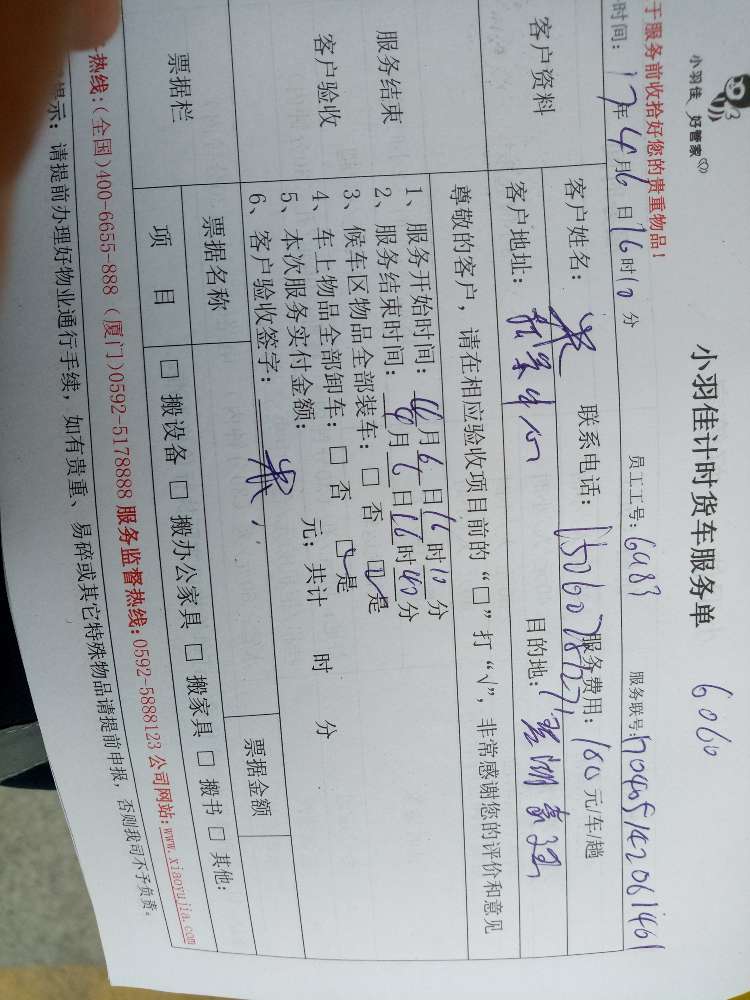 小羽佳 好管家
小羽佳计时货车服务单
6060
于服务前收拾好您的贵重物品!
时间: 17年4月6日16时10分 员工工号: 6983 服务联号:
客户资料
客户姓名: 联系电话: 服务费用: 100元/车/趟
客户地址: 目的地:
服务结束
客户验收
尊敬的客户, 请在相应验收项目前的“□”打“√”, 非常感谢您的评价和意见
1、服务开始时间: 4月6日16时10分
2、服务结束时间: 4月6日16时40分
3、候车区物品全部装车: □ 否 □是
4、车上物品全部卸车: □ 否 □是
5、本次服务实付金额: 元; 共计 时 分
6、客户验收签字:
票据栏
票据名称 票据金额
项 目 □ 搬设备 □ 搬办公家具 □ 搬家具 □ 搬书 □ 其他:
热线:(全国)400-6655-888 (厦门)0592-5178888 服务监督热线:0592-5888123 公司网站:www.xiaoyujia.com
提示: 请提前办理好物业通行手续, 如有贵重、易碎或其它特殊物品请提前申报, 否则我司不予负责。